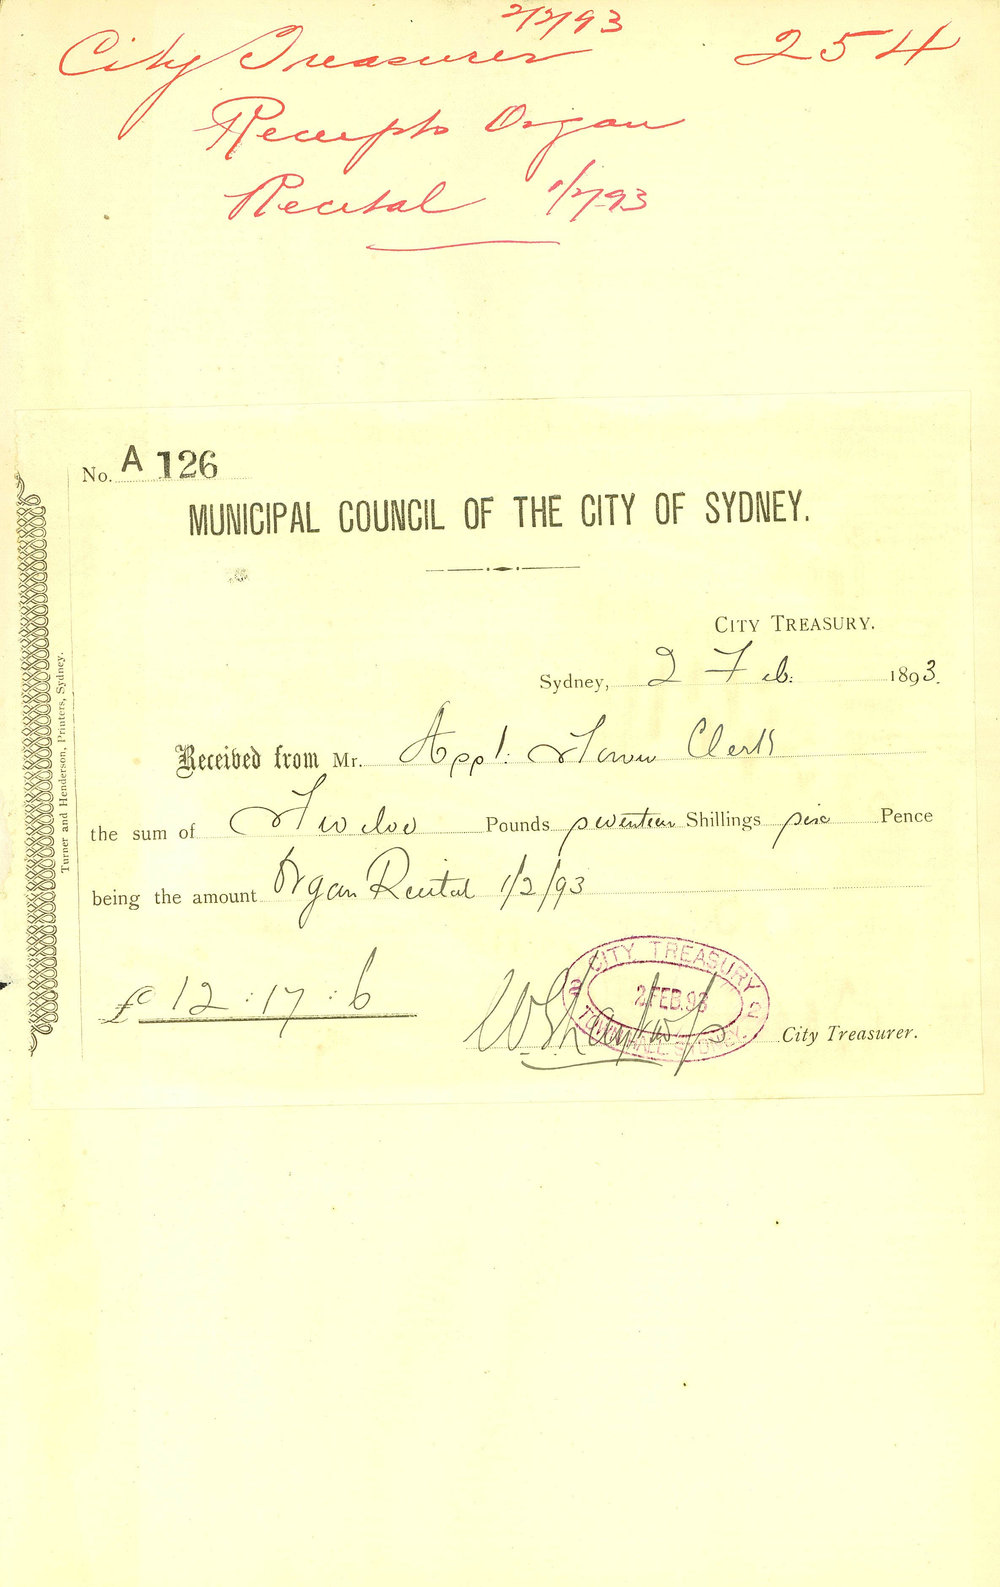 2/2/93
City Treasurer 254
Receipts Organ
Recital 1/2/93
No. A 126
MUNICIPAL COUNCIL OF THE CITY OF SYDNEY.
CITY TREASURY.
Sydney, 2 Feb. 1893.
Received from Mr. Town Clerk
the sum of Twelve Pounds seventeen Shillings six Pence
being the amount Organ Recital 1/2/93
£ 12:17:6
CITY TREASURY
2 FEB. 93
TOWN HALL SYDNEY
City Treasurer.
Turner and Henderson, Printers, Sydney.